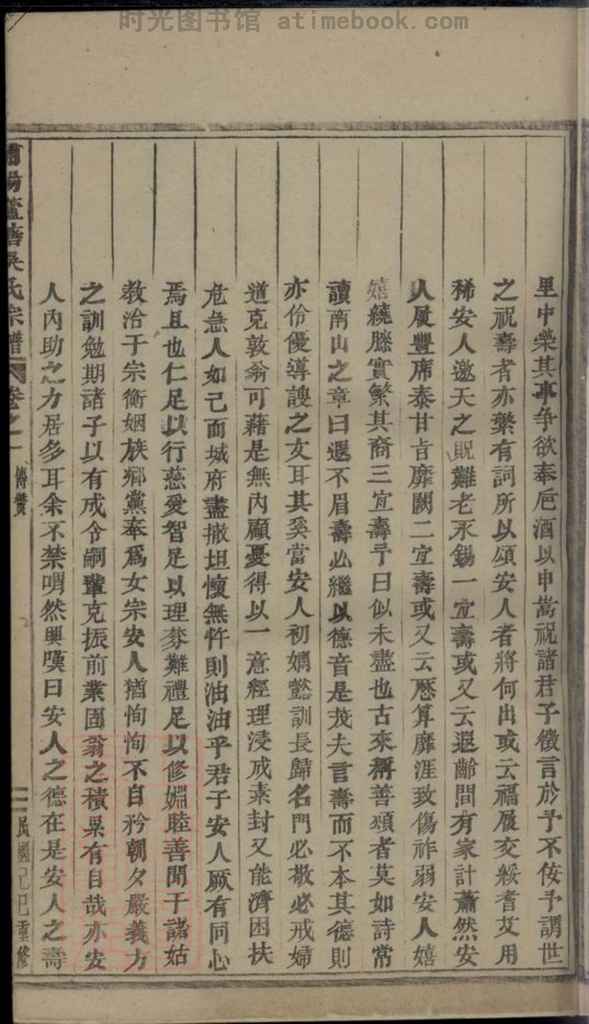 时光图书馆 atimebook.com
里中樂其事爭欲奉卮酒以申嵩祝諸君子徵言於予不侫予謂世
之祝壽者亦樂有詞所以頌安人者將何出或云福履交綏耆艾用
稀安人邀天之貺難老永錫一宜壽或又云遐齡間有家計蕭然安
人履豐席泰甘旨靡闕二宜壽或又云厯算靡涯致傷祚弱安人嬉
嬉繞膝實繁其裔三宜壽予曰似未盡也古來稱善頌者莫如詩常
讀南山之章曰遐不眉壽必繼以德音是茂夫言壽而不本其德則
亦伶優導諛之文耳其奚當安人初嫻懿訓長歸名門必敬必戒婦
道克敦翁可藉是無內顧憂得以一意經理浸成素封又能濟困扶
危急人如己而城府盡撤坦懷無忤則油油乎君子安人厥有同心
焉且也仁足以行慈愛智足以理棼難禮足以修婣睦善聞于諸姑
教洽于宗衖姻族鄉黨奉為女宗安人猶恂恂不自矜朝夕嚴義方
之訓勉期諸子以有成令嗣輩克振前業固翁之積累有自哉亦安
人內助之力居多耳余不禁喟然興嘆曰安人之德在是安人之壽
吳氏宗譜 卷之一 傳贊 民國己巳重修